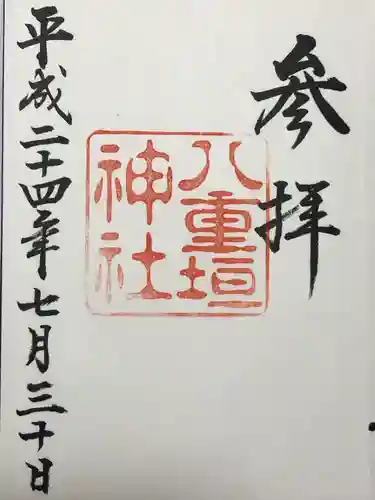 參拝
八重垣
神社
平成二十四年七月三十日